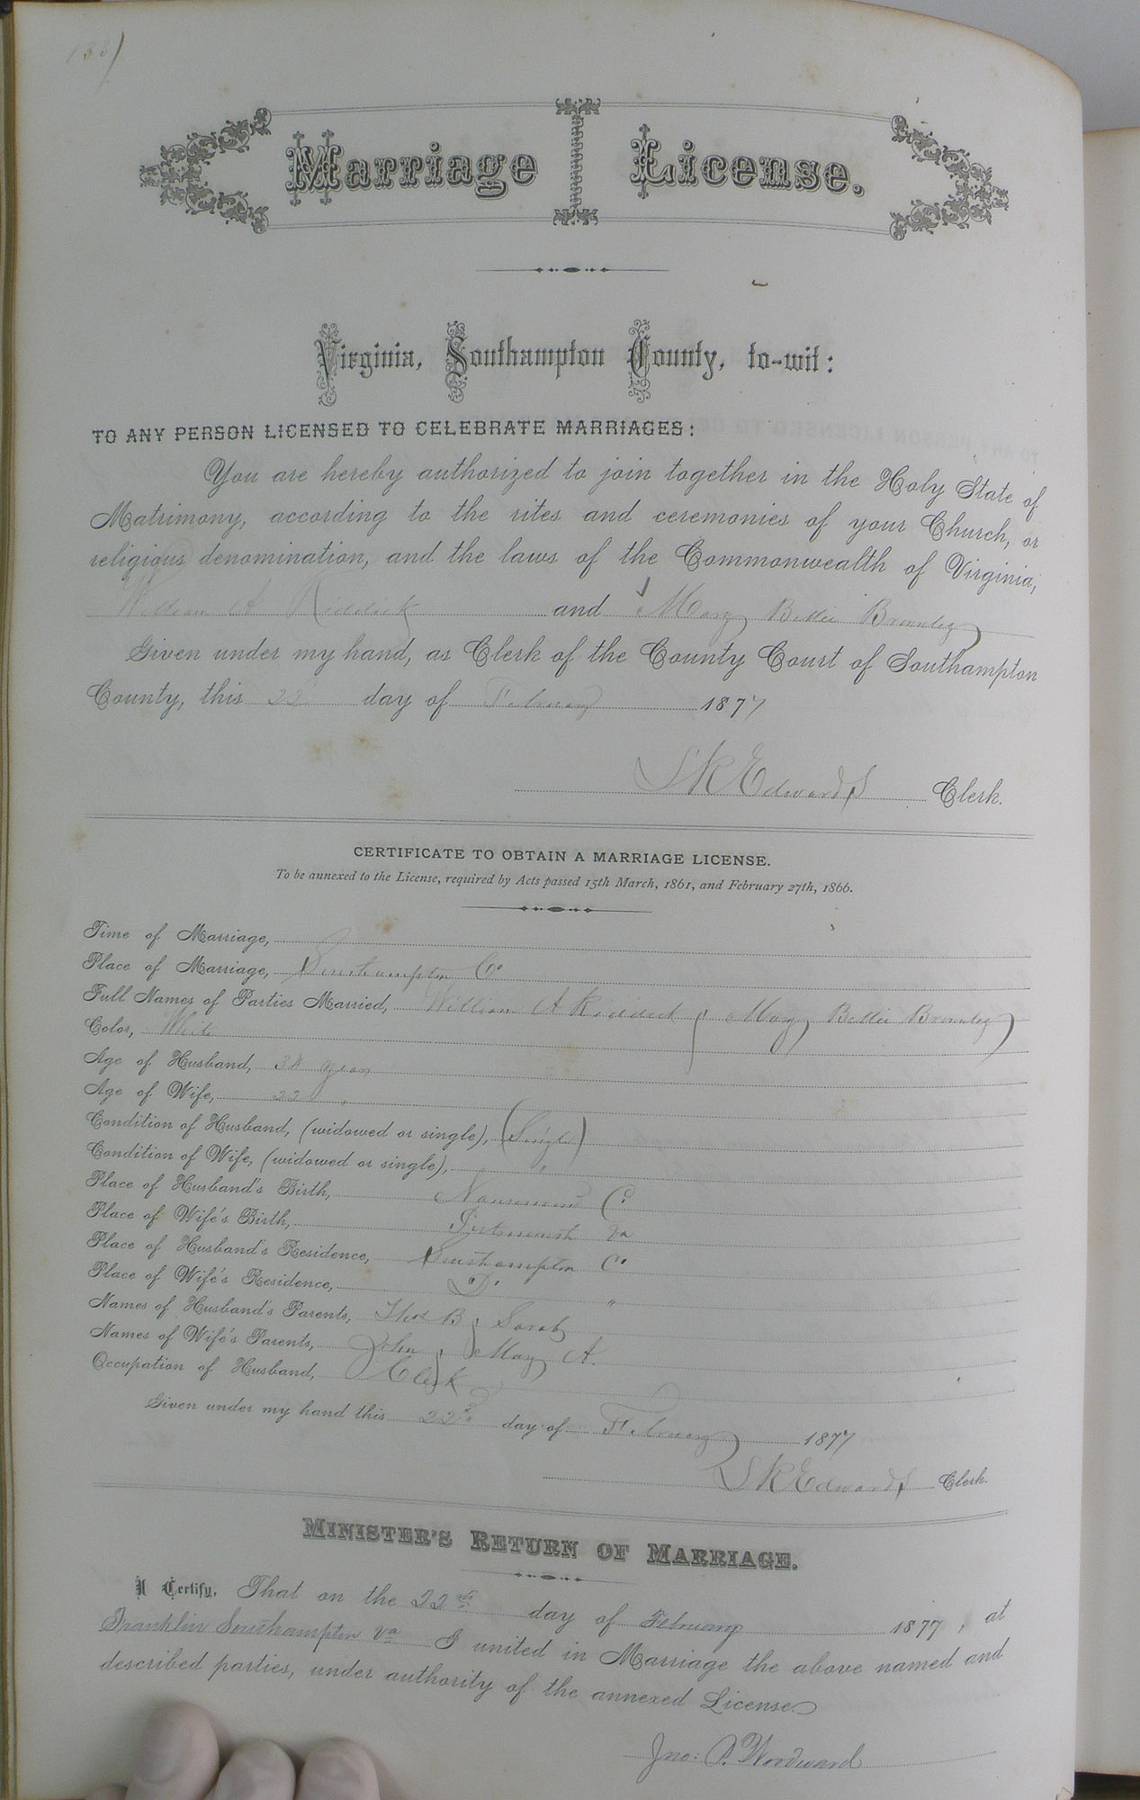 Marriage License.
Virginia, Southampton County, to-wit:
TO ANY PERSON LICENSED TO CELEBRATE MARRIAGES:
You are hereby authorized to join together in the Holy State of
Matrimony, according to the rites and ceremonies of your Church, or
religious denomination, and the laws of the Commonwealth of Virginia,
William A Riddick and Mary Bettie
Given under my hand, as Clerk of the County Court of Southampton
County, this 22 day of February 1877
S K Edwards Clerk.
CERTIFICATE TO OBTAIN A MARRIAGE LICENSE.
To be annexed to the License, required by Acts passed 15th March, 1861, and February 27th, 1866.
Time of Marriage,
Place of Marriage, Southampton Co
Full Names of Parties Married, William A Riddick Mary Bettie
Color, White
Age of Husband, years
Age of Wife, 22 "
Condition of Husband, (widowed or single), (Single)
Condition of Wife, (widowed or single), "
Place of Husband's Birth, Nansemond Co
Place of Wife's Birth, Portsmouth Va
Place of Husband's Residence, Southampton Co
Place of Wife's Residence, Do "
Names of Husband's Parents, Thos B Sarah
Names of Wife's Parents, John Mary A.
Occupation of Husband, Clerk
Given under my hand this 22d day of February 1877
S K Edwards Clerk.
MINISTER'S RETURN OF MARRIAGE.
I Certify, That on the 22nd day of February 1877, at
Franklin Southampton Va I united in Marriage the above named and
described parties, under authority of the annexed License
Jno: P. Woodward